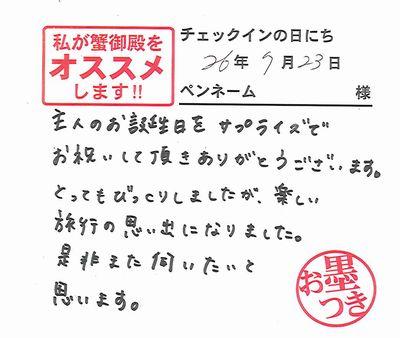 私が蟹御殿を
オススメ
します!!
チェックインの日にち
26年9月23日
ペンネーム 様
主人のお誕生日をサプライズで
お祝いして頂きありがとうございます。
とってもびっくりしましたが、楽しい
旅行の思い出になりました。
是非また伺いたいと
思います。
お墨つき